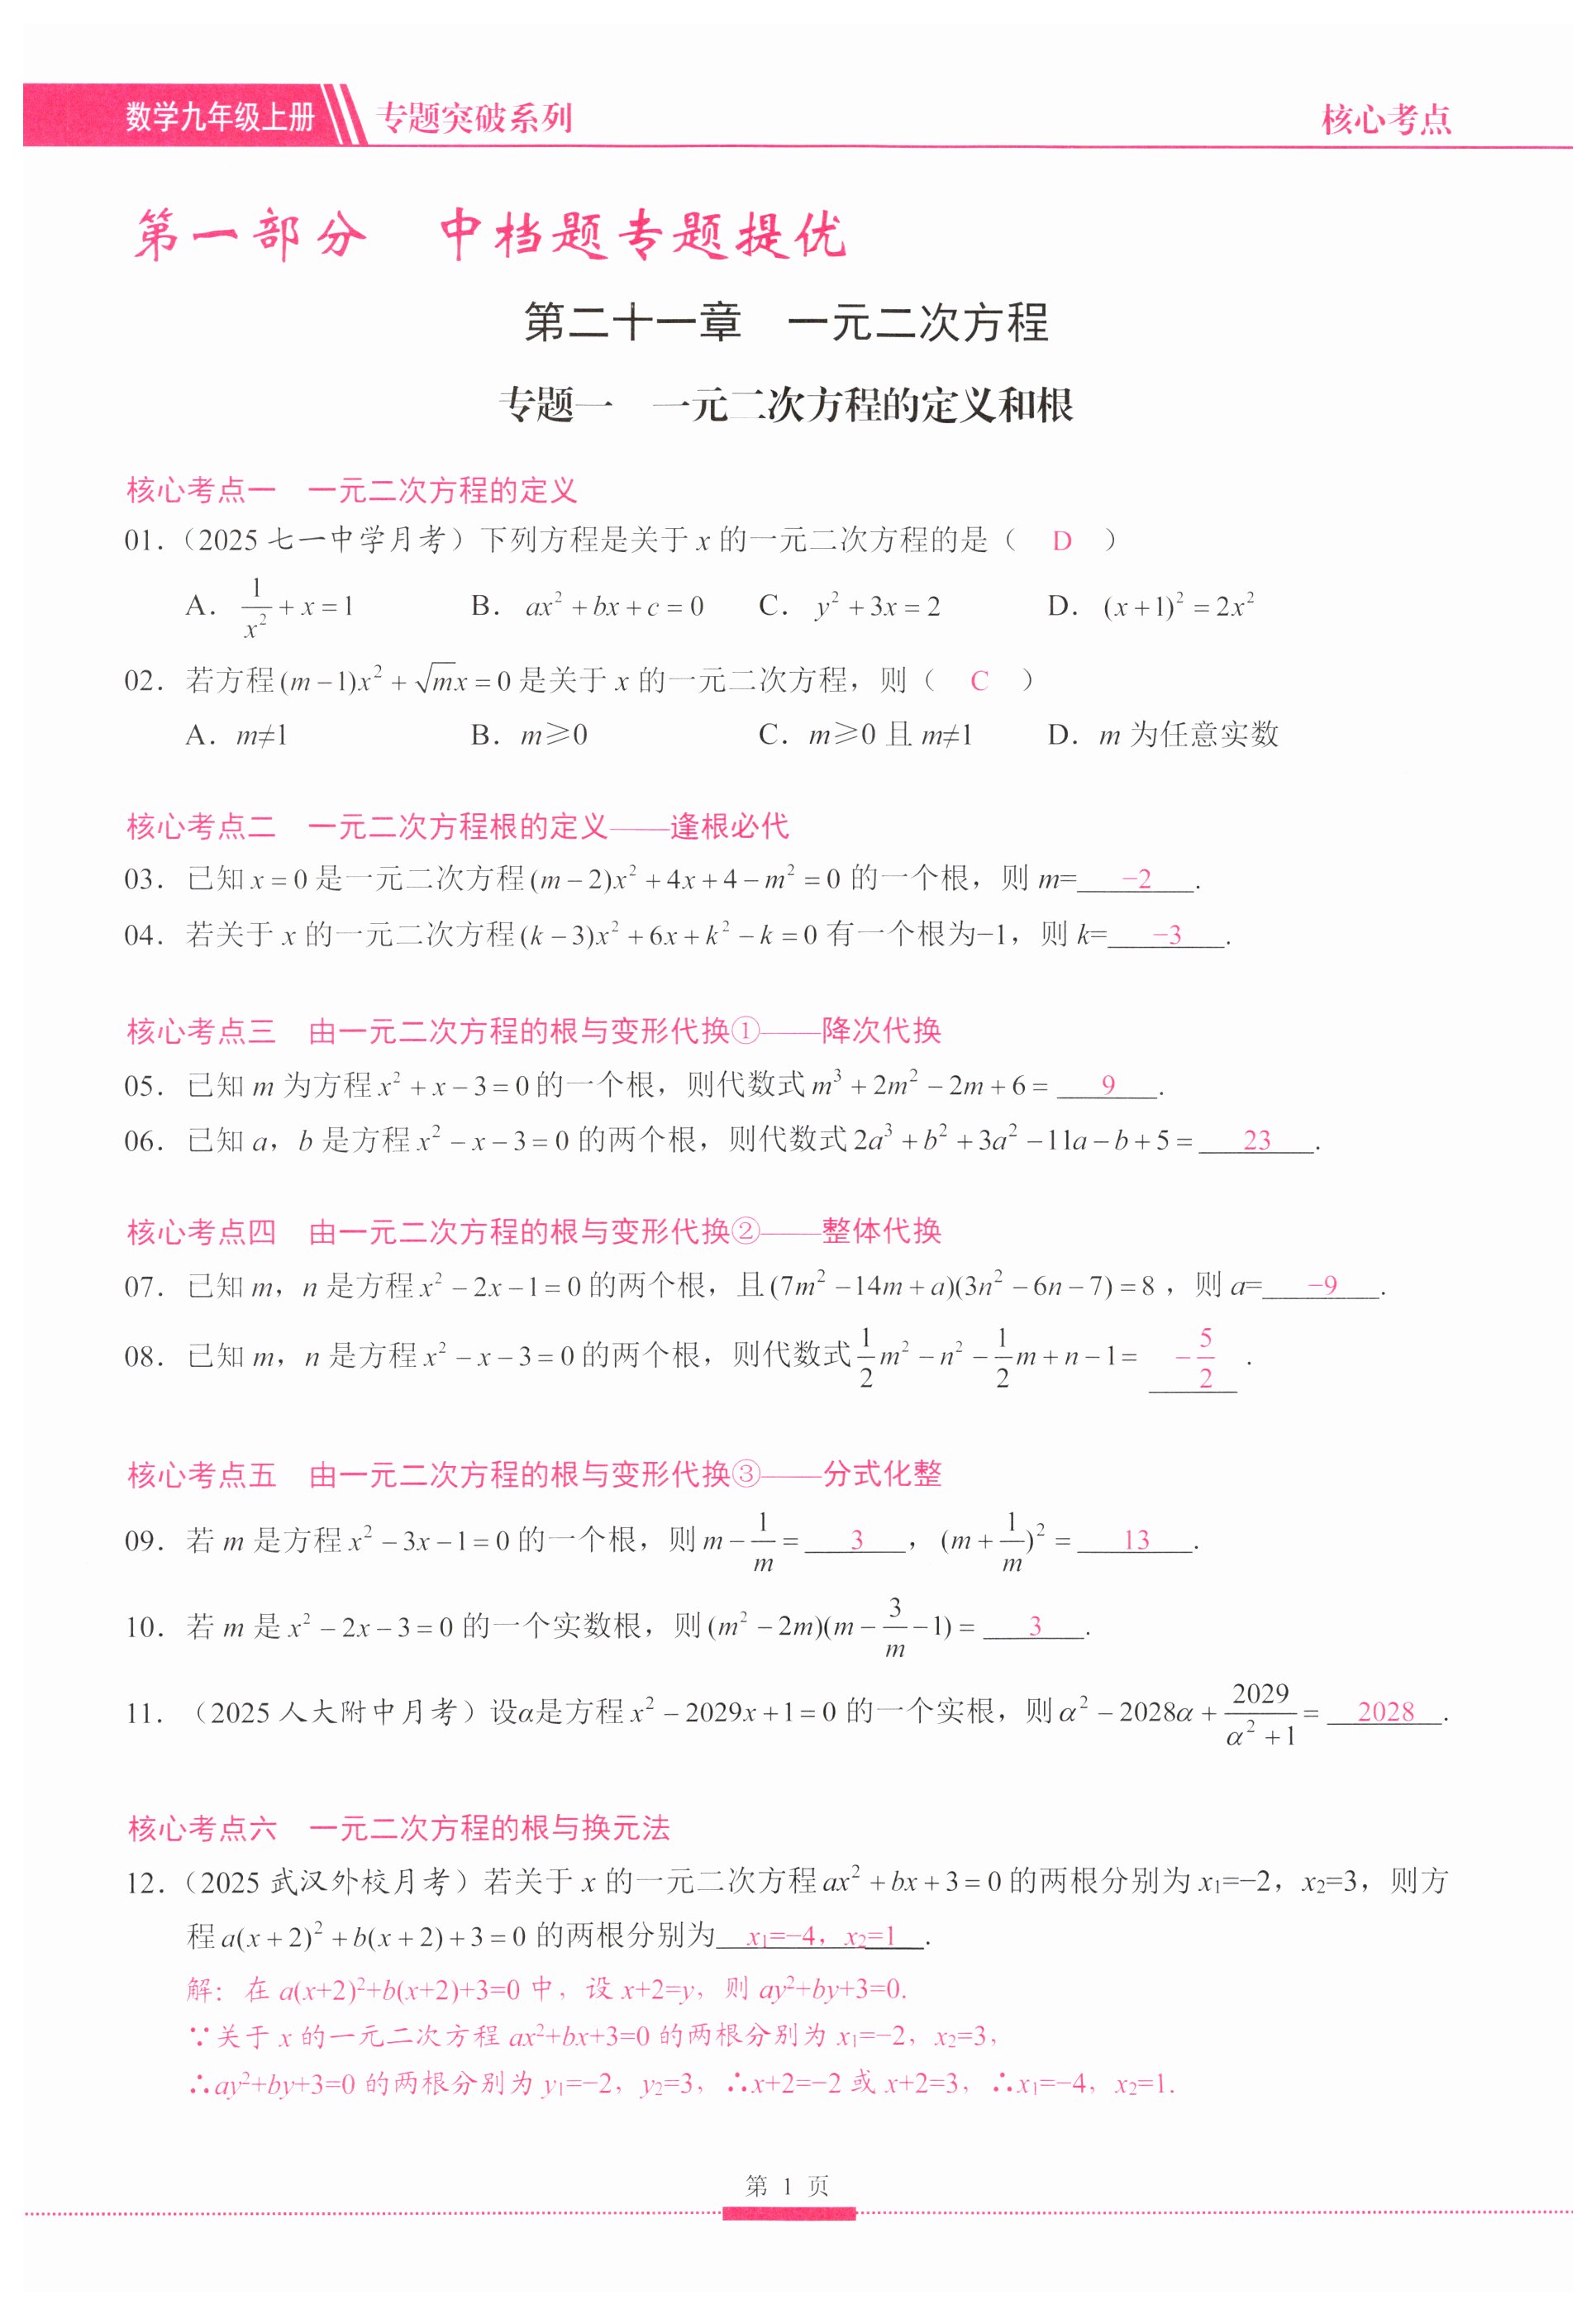 数学九年级上册 专题突破系列 核心考点
第一部分 中档题专题提优
第二十一章 一元二次方程
专题一 一元二次方程的定义和根
核心考点一 一元二次方程的定义
01.（2025 七一中学月考）下列方程是关于 x 的一元二次方程的是（ D ）
A. 1/x² + x = 1 B. ax² + bx + c = 0 C. y² + 3x = 2 D. (x+1)² = 2x²
02. 若方程 (m−1)x² + √m x = 0 是关于 x 的一元二次方程，则（ C ）
A. m≠1 B. m≥0 C. m≥0 且 m≠1 D. m 为任意实数
核心考点二 一元二次方程根的定义——逢根必代
03. 已知 x = 0 是一元二次方程 (m−2)x² + 4x + 4 − m² = 0 的一个根，则 m= −2 .
04. 若关于 x 的一元二次方程 (k−3)x² + 6x + k² − k = 0 有一个根为−1，则 k= −3 .
核心考点三 由一元二次方程的根与变形代换①——降次代换
05. 已知 m 为方程 x² + x − 3 = 0 的一个根，则代数式 m³ + 2m² − 2m + 6 = 9 .
06. 已知 a，b 是方程 x² − x − 3 = 0 的两个根，则代数式 2a³ + b² + 3a² − 11a − b + 5 = 23 .
核心考点四 由一元二次方程的根与变形代换②——整体代换
07. 已知 m，n 是方程 x² − 2x − 1 = 0 的两个根，且 (7m² − 14m + a)(3n² − 6n − 7) = 8，则 a= −9 .
08. 已知 m，n 是方程 x² − x − 3 = 0 的两个根，则代数式 1/2 m² − n² − 1/2 m + n − 1 = −5/2 .
核心考点五 由一元二次方程的根与变形代换③——分式化整
09. 若 m 是方程 x² − 3x − 1 = 0 的一个根，则 m − 1/m = 3 ，(m + 1/m)² = 13 .
10. 若 m 是 x² − 2x − 3 = 0 的一个实数根，则 (m² − 2m)(m − 3/m − 1) = 3 .
11. （2025 人大附中月考）设α是方程 x² − 2029x + 1 = 0 的一个实根，则 α² − 2028α + 2029/(α² + 1) = 2028 .
核心考点六 一元二次方程的根与换元法
12.（2025 武汉外校月考）若关于 x 的一元二次方程 ax² + bx + 3 = 0 的两根分别为 x₁=−2，x₂=3，则方
程 a(x+2)² + b(x+2) + 3 = 0 的两根分别为 x₁=−4，x₂=1 .
解：在 a(x+2)²+b(x+2)+3=0 中，设 x+2=y，则 ay²+by+3=0.
∵关于 x 的一元二次方程 ax²+bx+3=0 的两根分别为 x₁=−2，x₂=3，
∴ay²+by+3=0 的两根分别为 y₁=−2，y₂=3，∴x+2=−2 或 x+2=3，∴x₁=−4，x₂=1.
第 1 页